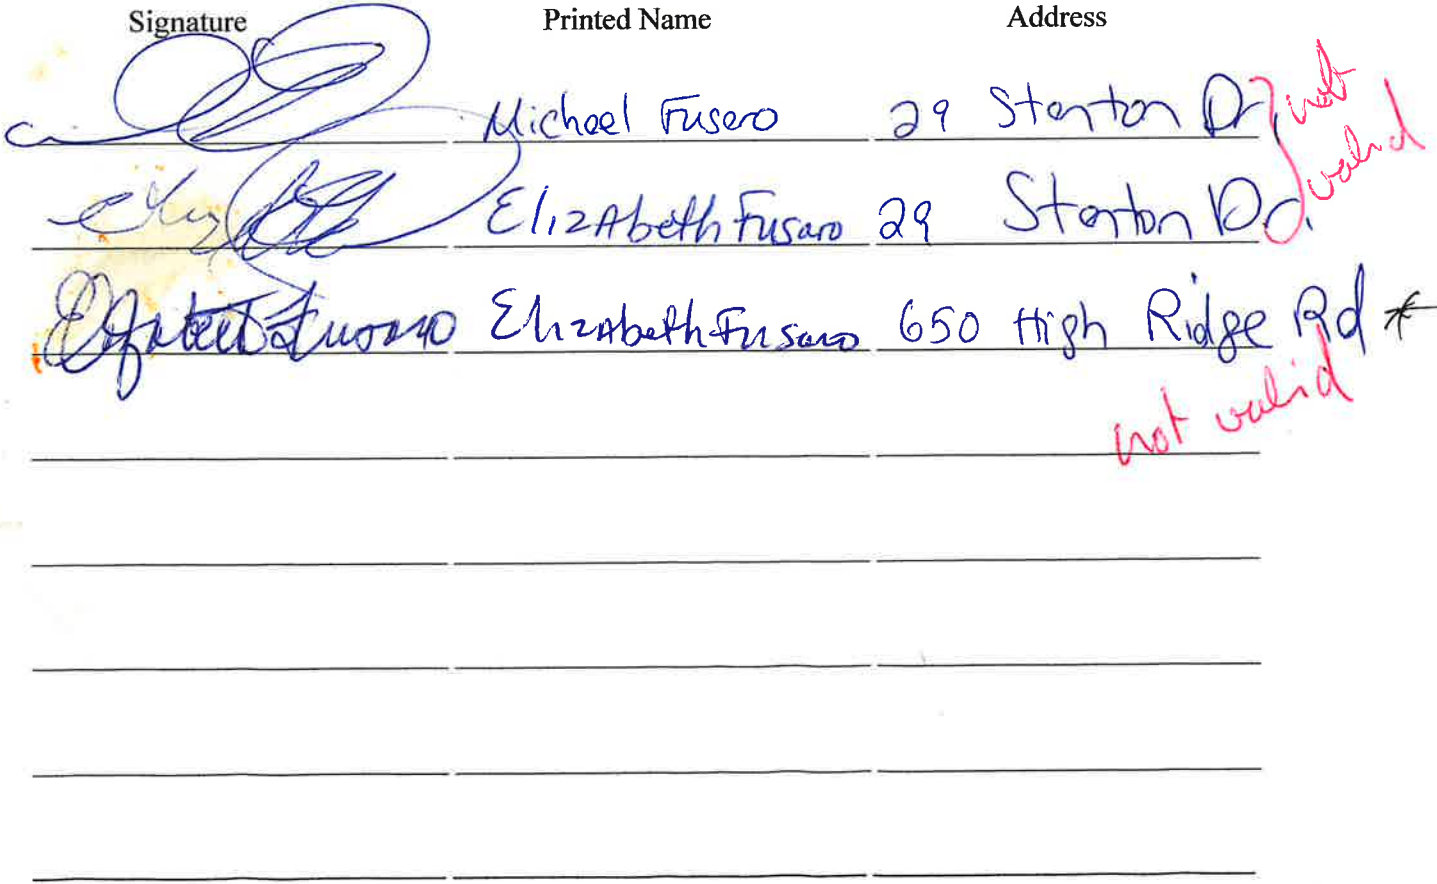 Signature Printed Name Address
Michael Fusaro 29 Stanton Dr. not valid
Elizabeth Fusaro 29 Stanton Dr.
Elizabeth Fusaro Elizabeth Fusaro 650 High Ridge Rd *
not valid